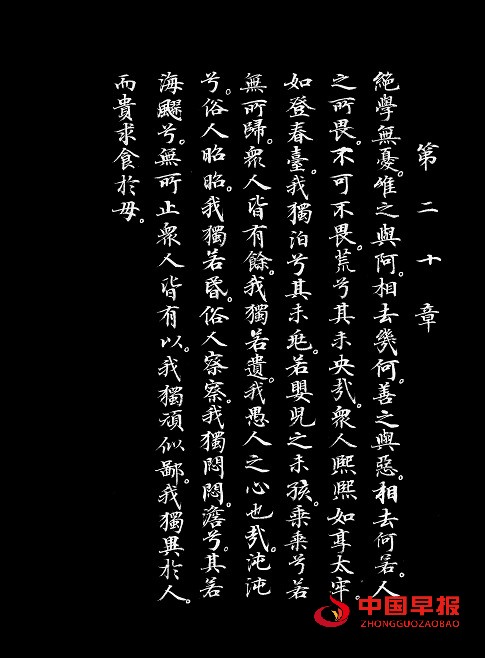 第二十章
絕學無憂。唯之與阿。相去幾何。善之與惡。相去何若。人
之所畏。不可不畏。荒兮其未央哉。衆人熙熙如享太牢。
如登春臺。我獨泊兮其未兆。若嬰兒之未孩。乘乘兮若
無所歸。衆人皆有餘。我獨若遺。我愚人之心也哉。沌沌
兮。俗人昭昭。我獨若昏。俗人察察。我獨悶悶。澹兮。其若
海。飂兮。無所止衆人皆有以。我獨頑似鄙。我獨異於人。
而貴求食於母。
中国早报
ZHONGGUOZAOBAO